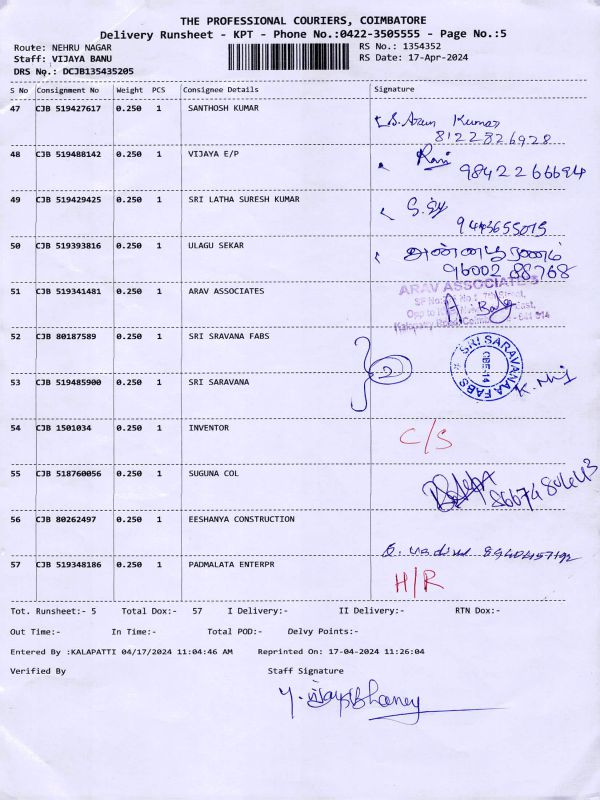 THE PROFESSIONAL COURIERS, COIMBATORE
Delivery Runsheet - KPT - Phone No.:0422-3505555 - Page No.:5
Route: NEHRU NAGAR
RS No.: 1354352
Staff: VIJAYA BANU
RS Date: 17-Apr-2024
DRS No.: DCJB135435205
S No Consignment No Weight PCS Consignee Details Signature
47 CJB 519427617 0.250 1 SANTHOSH KUMAR
S. Arun Kumar
8122826928
48 CJB 519488142 0.250 1 VIJAYA E/P
Ravi
9842266694
49 CJB 519429425 0.250 1 SRI LATHA SURESH KUMAR
9443655015
50 CJB 519393816 0.250 1 ULAGU SEKAR
96002 88768
51 CJB 519341481 0.250 1 ARAV ASSOCIATES
ARAV ASSOCIATES
52 CJB 80187589 0.250 1 SRI SRAVANA FABS
2
SRI SARAVANAA FABS
CBE-14
53 CJB 519485900 0.250 1 SRI SARAVANA
54 CJB 1501034 0.250 1 INVENTOR
C/S
55 CJB 518760056 0.250 1 SUGUNA COL
56 CJB 80262497 0.250 1 EESHANYA CONSTRUCTION
8940457192
57 CJB 519348186 0.250 1 PADMALATA ENTERPR
H/R
Tot. Runsheet:- 5 Total Dox:- 57 I Delivery:- II Delivery:- RTN Dox:-
Out Time:- In Time:- Total POD:- Delvy Points:-
Entered By :KALAPATTI 04/17/2024 11:04:46 AM Reprinted On: 17-04-2024 11:26:04
Verified By Staff Signature